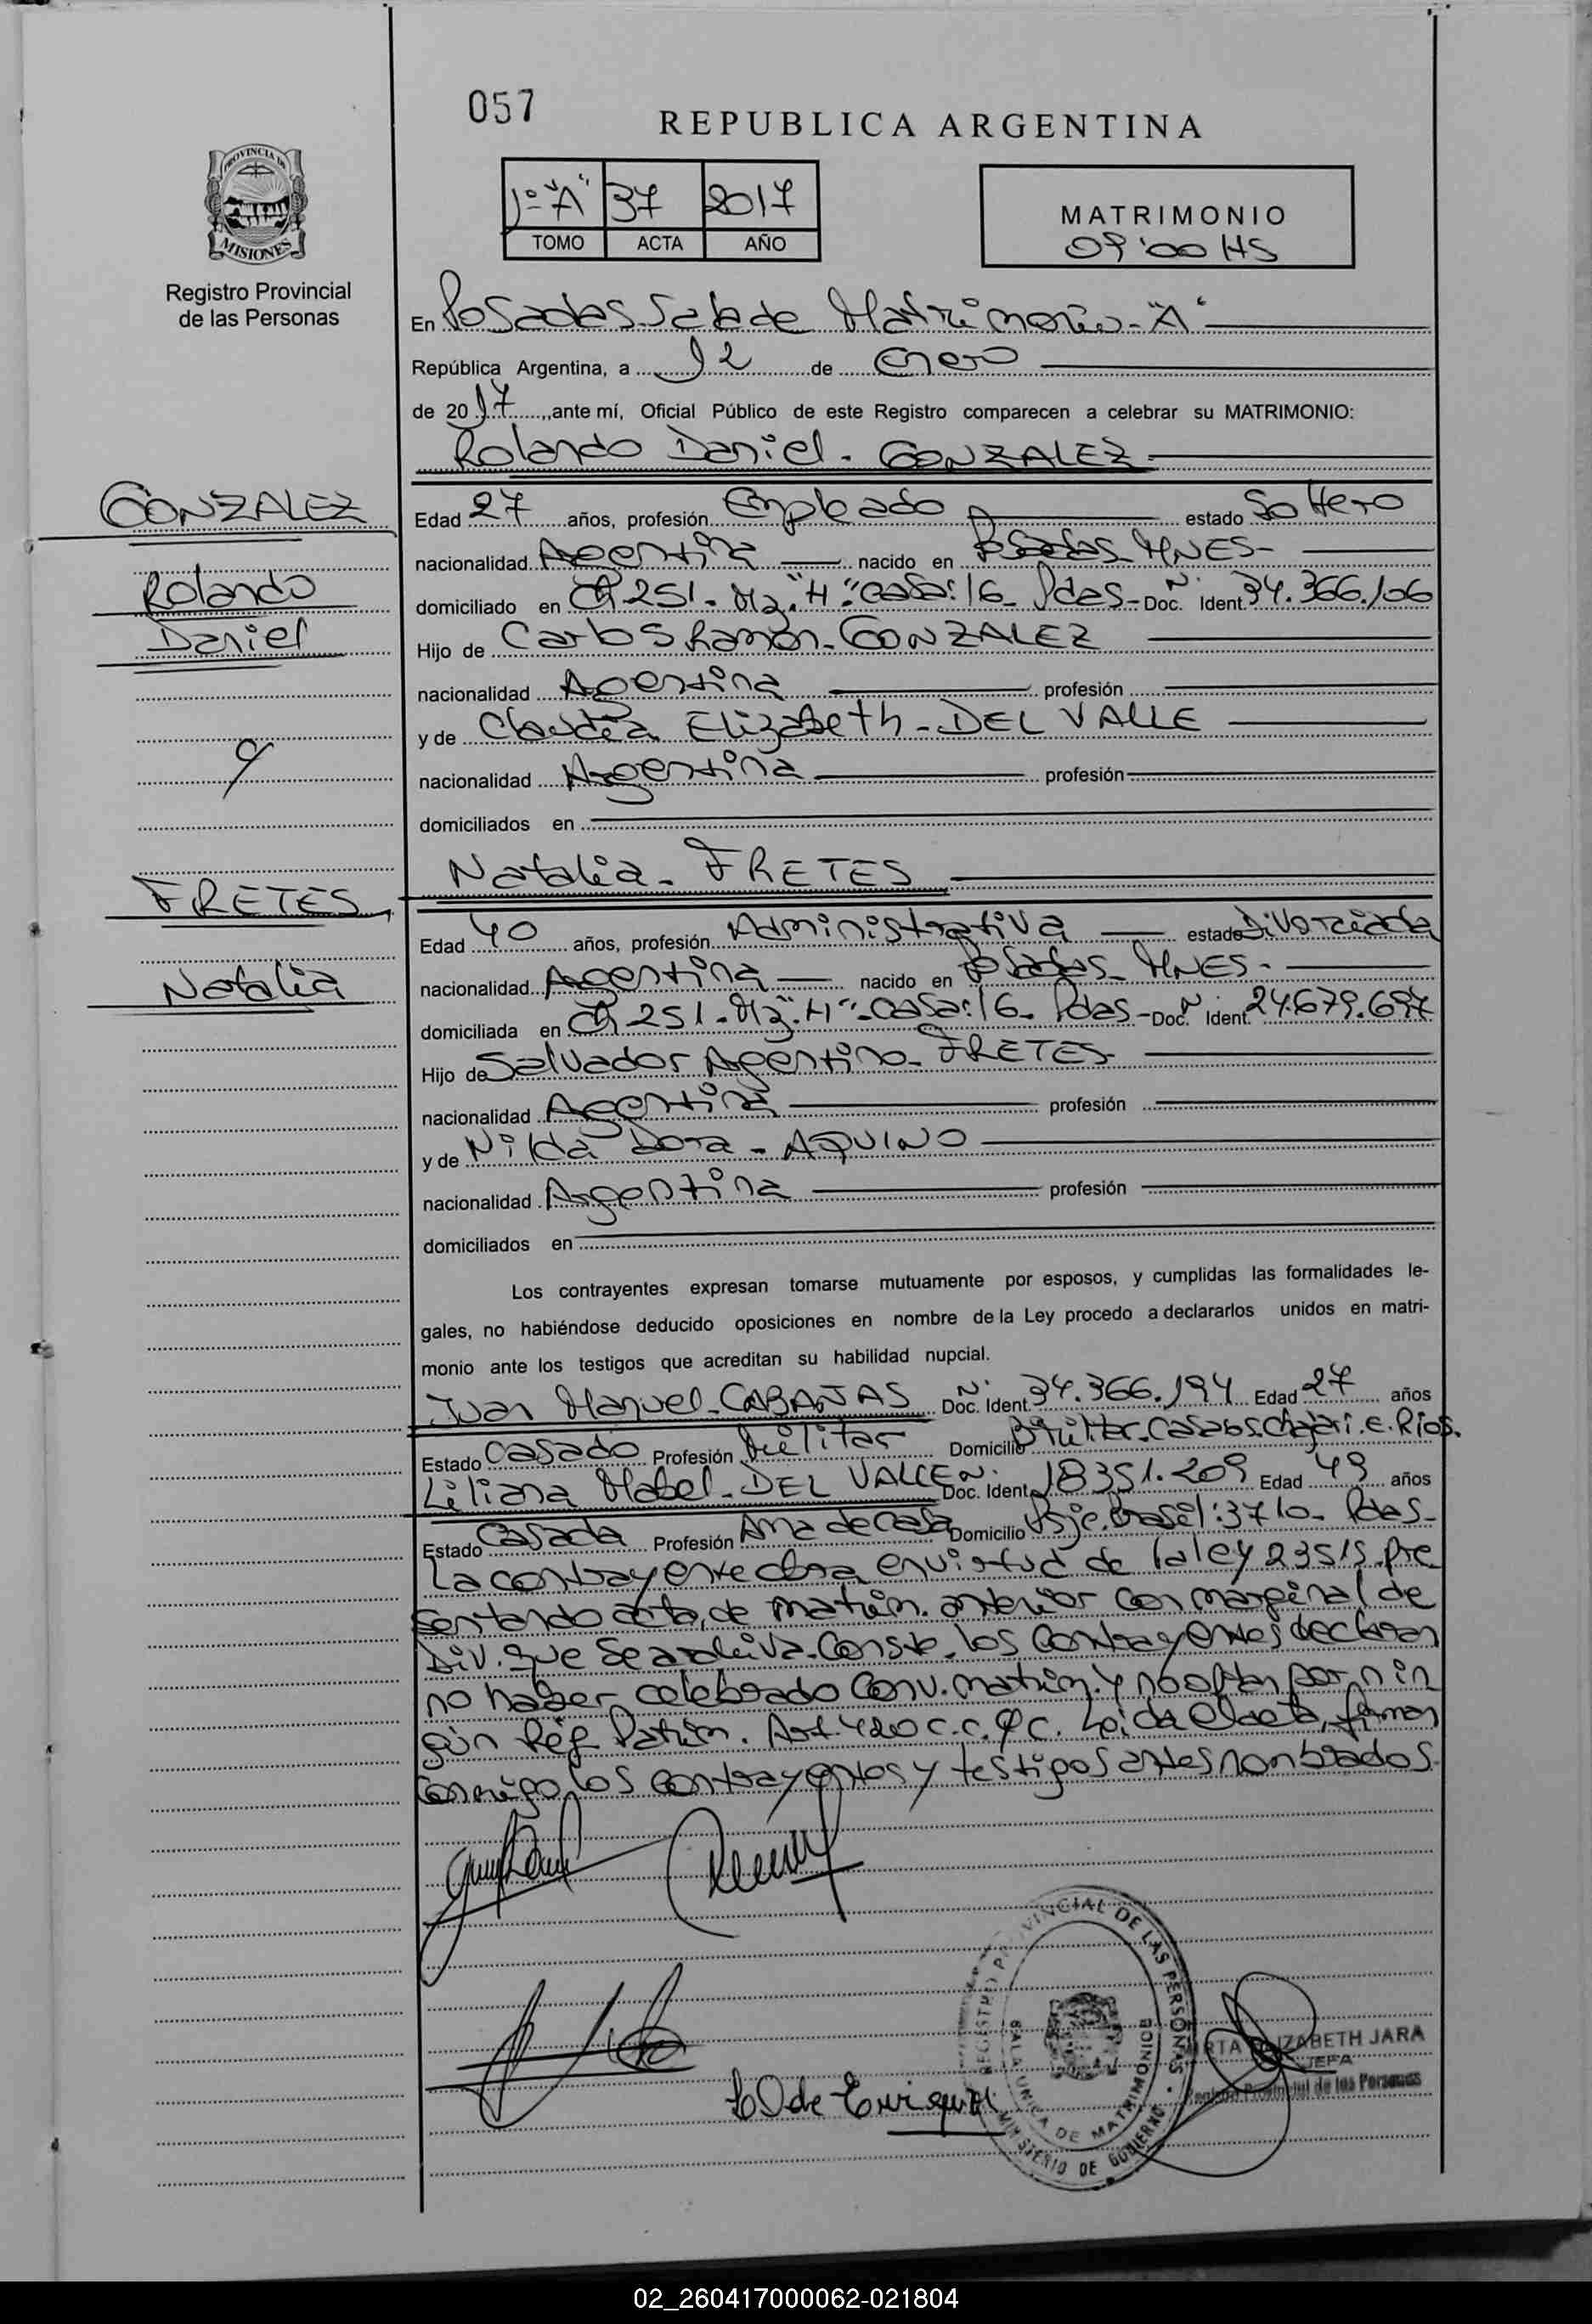 057
REPUBLICA ARGENTINA
PROVINCIA DE
MISIONES
Registro Provincial
de las Personas
1º "A" 37 2017
TOMO ACTA AÑO
MATRIMONIO
09:00 HS
En Posadas-Sala de Matrimonio-"A"
República Argentina, a 12 de Enero
de 2017, ante mí, Oficial Público de este Registro comparecen a celebrar su MATRIMONIO:
Rolando Daniel - GONZALEZ
GONZALEZ
Rolando
Daniel
Edad 27 años, profesión Empleado estado Soltero
nacionalidad Argentina nacido en Posadas-MNES-
domiciliado en Ch 251-Mz."H"-casa:16-Pdas-Doc. Nº Ident. 34.366.106
Hijo de Carlos Ramón-GONZALEZ
nacionalidad Argentina profesión
y de Claudia Elizabeth-DEL VALLE
nacionalidad Argentina profesión
domiciliados en
y
Natalia-FRETES
FRETES
Natalia
Edad 40 años, profesión Administrativa estado Divorciada
nacionalidad Argentina nacido en Posadas-MNES-
domiciliada en Ch 251-Mz."H"-casa:16-Pdas-Doc. Nº Ident. 24.679.697
Hijo de Salvador Argentino-FRETES
nacionalidad Argentina profesión
y de Nilda Dora-AQUINO
nacionalidad Argentina profesión
domiciliados en
Los contrayentes expresan tomarse mutuamente por esposos, y cumplidas las formalidades le-
gales, no habiéndose deducido oposiciones en nombre de la Ley procedo a declararlos unidos en matri-
monio ante los testigos que acreditan su habilidad nupcial.
Juan Manuel-CABAÑAS Doc. Nº Ident. 34.366.194 Edad 27 años
Estado Casado Profesión Militar Domicilio Chajarí.E.Ríos.
Liliana Mabel-DEL VALLE Doc. Nº Ident. 18351.209 Edad 49 años
Estado Casada Profesión Ama de casa Domicilio Psje.Brasil:3710-Pdas-
La contrayente obra en virtud de la ley 23515 pre
sentando acta de matrim. anterior con marginal de
Div. que se archiva. Conste. los contrayentes declaran
no haber celebrado Conv. matrim. y no optan por nin
gún Rég. Patrim. Art. 420 C.C.y C. Leída el acta, firman
conmigo los contrayentes y testigos antes nombrados.
LD de Enriquez
REGISTRO PROVINCIAL DE LAS PERSONAS
SALA UNICA DE MATRIMONIOS
MINISTERIO DE GOBIERNO
ELIZABETH JARA
JEFA
Registro Provincial de las Personas
02_260417000062-021804